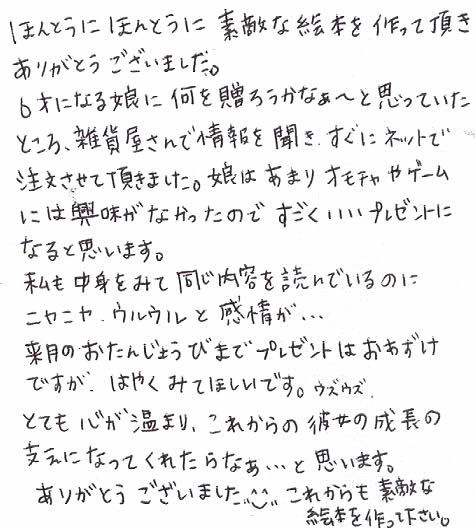 ほんとうにほんとうに 素敵な絵本を作って頂き
ありがとうございました。
6才になる娘に何を贈ろうかなぁ〜と思っていた
ところ、雑貨屋さんで情報を聞き、すぐにネットで
注文させて頂きました。娘はあまりオモチャやゲーム
には興味がなかったので すごくいいプレゼントに
なると思います。
私も中身をみて同じ内容を読んでいるのに
ニヤニヤ、ウルウルと感情が…
来月のおたんじょうびまでプレゼントはおあずけ
ですが、はやくみてほしいです。ウズウズ、
とても心が温まり、これからの彼女の成長の
支えになってくれたらなぁ…と思います。
ありがとうございました これからも素敵な
絵本を作って下さい。